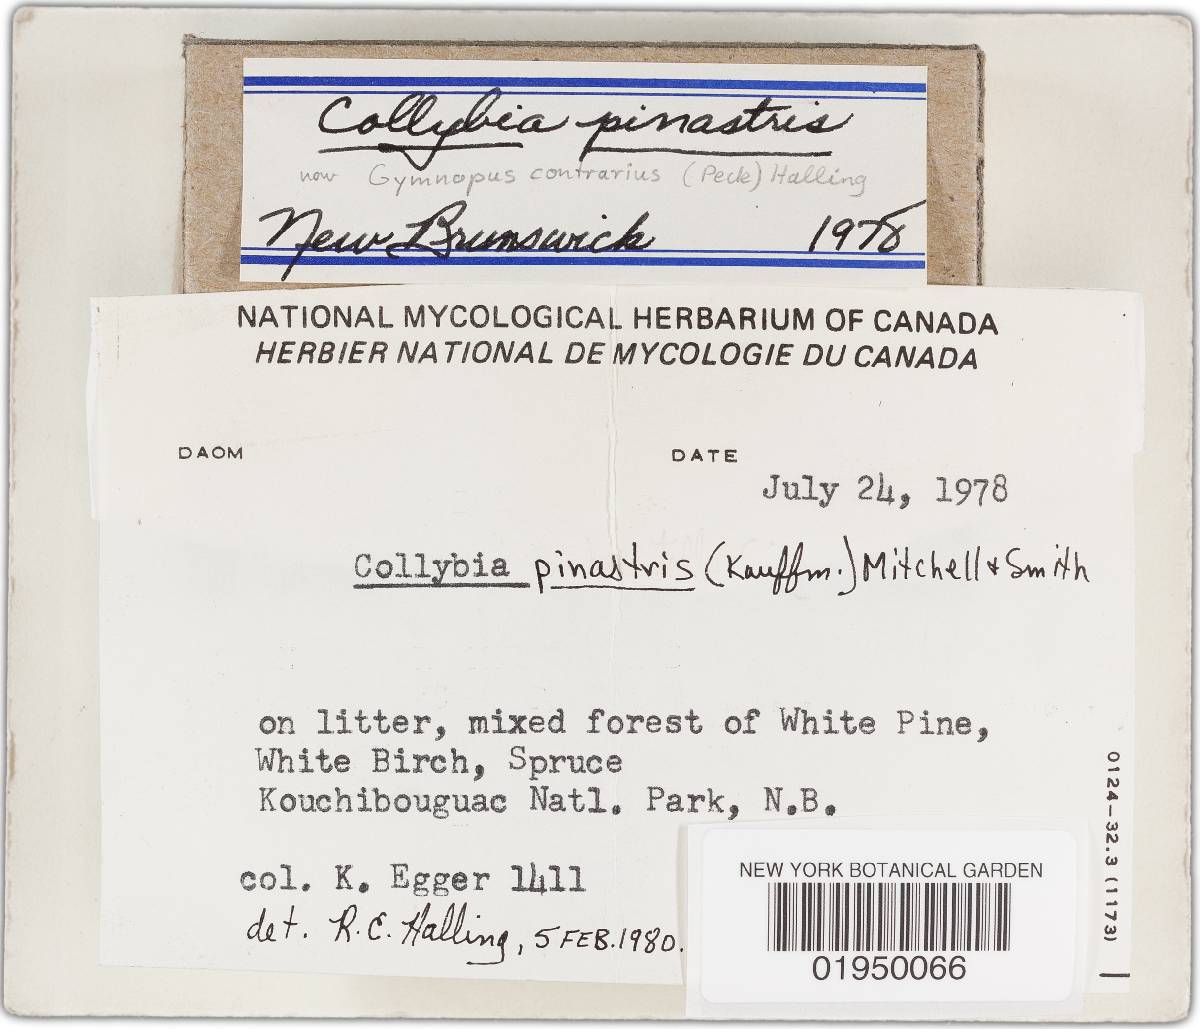 Collybia pinastris
now Gymnopus contrarius (Peck) Halling
New Brunswick 1978
NATIONAL MYCOLOGICAL HERBARIUM OF CANADA
HERBIER NATIONAL DE MYCOLOGIE DU CANADA
DAOM DATE
July 24, 1978
Collybia pinastris (Kauffm.) Mitchell & Smith
on litter, mixed forest of White Pine,
White Birch, Spruce
Kouchibouguac Natl. Park, N.B.
col. K. Egger 1411
det. R.E. Halling, 5 FEB. 1980.
0124-32.3 (1173)
NEW YORK BOTANICAL GARDEN
01950066